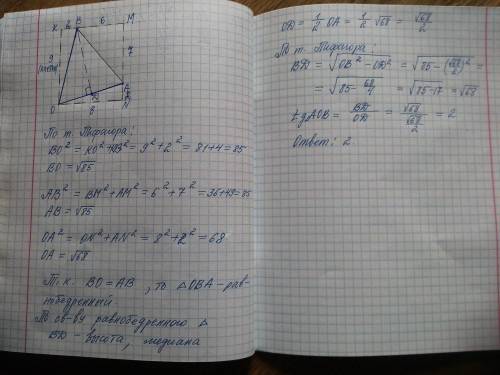 K 2 B 6 M
9
(клеток)
7
A
D
2
O 8 N
По т. Пифагора:
BO² = KO² + KB² = 9² + 2² = 81 + 4 = 85
BO = √85
AB² = BM² + AM² = 6² + 7² = 36 + 49 = 85
AB = √85
OA² = ON² + AN² = 8² + 2² = 68
OA = √68
Т.к. BO = AB, то △OBA - рав-
нобедренный.
По св-ву равнобедренного △
BD - высота, медиана
OD = 1/2 OA = 1/2 √68 = √68/2
По т. Пифагора
BD = √(OB² - OD²) = √(85 - (√68/2)²) =
= √(85 - 68/4) = √(85 - 17) = √68
tg∠AOB = BD/OD = √68/(√68/2) = 2
Ответ: 2